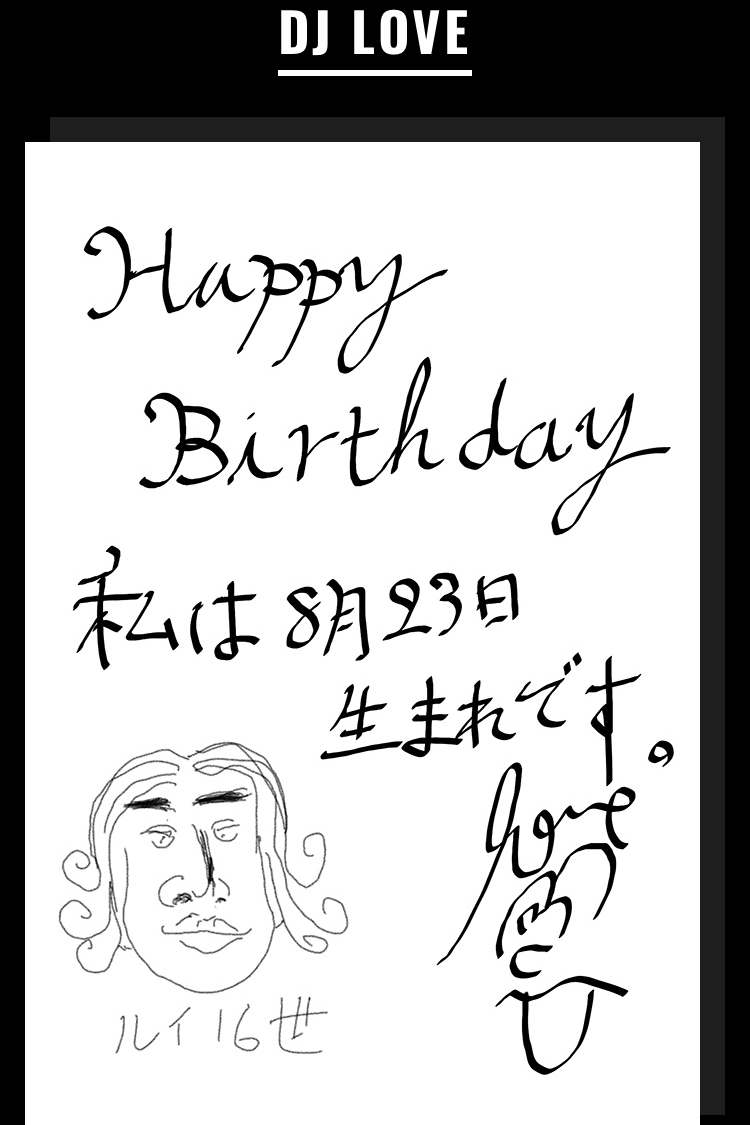 DJ LOVE
Happy
Birthday
私は8月23日
生まれです。
Love
ルイ16世